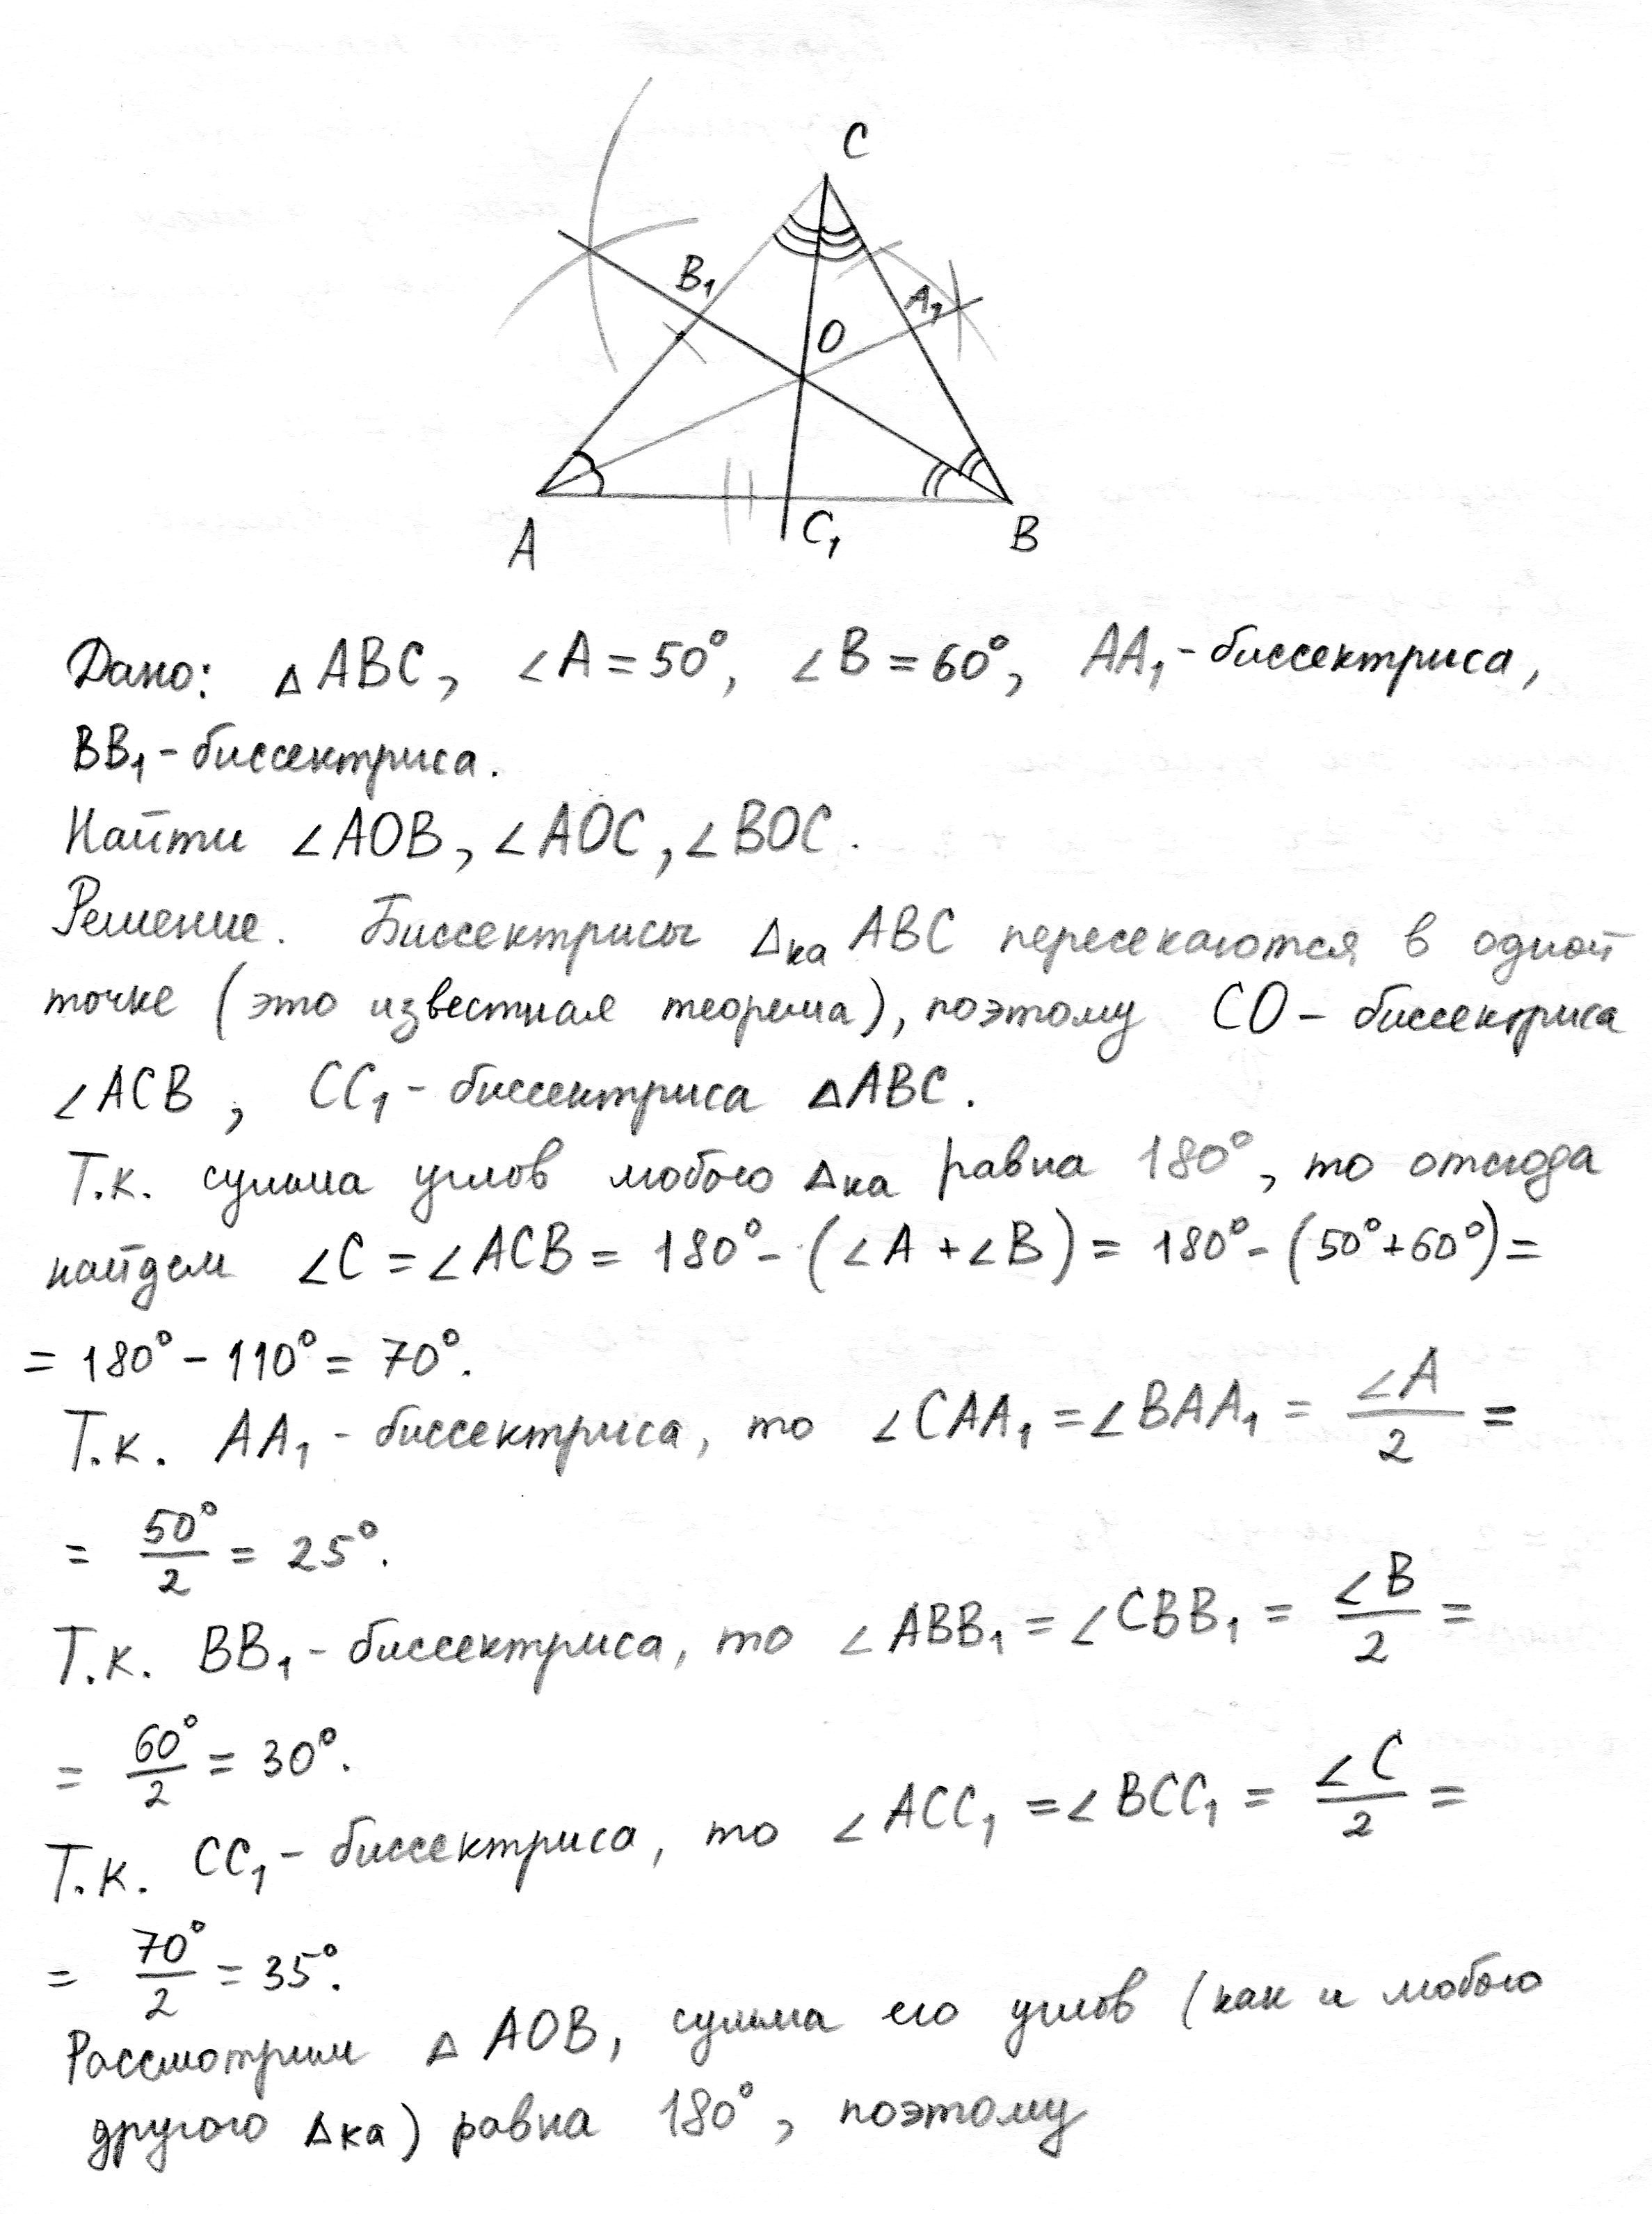 C
B₁
A₁
O
A
C₁
B
Дано: △ABC, ∠A = 50°, ∠B = 60°, AA₁ - биссектриса,
BB₁ - биссектриса.
Найти ∠AOB, ∠AOC, ∠BOC.
Решение. Биссектрисы △ка ABC пересекаются в одной
точке (это известная теорема), поэтому CO - биссектриса
∠ACB, CC₁ - биссектриса △ABC.
Т.к. сумма углов любого △ка равна 180°, то отсюда
найдем ∠C = ∠ACB = 180° - (∠A + ∠B) = 180° - (50° + 60°) =
= 180° - 110° = 70°.
Т.к. AA₁ - биссектриса, то ∠CAA₁ = ∠BAA₁ = ∠A/2 =
= 50°/2 = 25°.
Т.к. BB₁ - биссектриса, то ∠ABB₁ = ∠CBB₁ = ∠B/2 =
= 60°/2 = 30°.
Т.к. CC₁ - биссектриса, то ∠ACC₁ = ∠BCC₁ = ∠C/2 =
= 70°/2 = 35°.
Рассмотрим △ AOB, сумма его углов (как и любого
другого △ка) равна 180°, поэтому